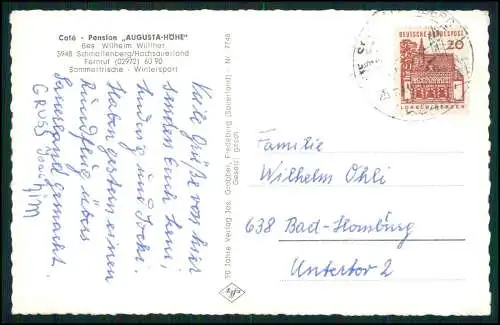 Café - Pension „AUGUSTA-HÖHE"
Bes. Wilhelm Willmer
5948 Schmallenberg/Hochsauerland
Fernruf (02972) 60 90
Sommerfrische - Wintersport
Viele Grüße von hier
senden Euch Leni,
Ludwig und
Haben gestern einen
Rundflug übers
Sauerland gemacht.
GRUSS Joachim
10 Jahre Verlag Jos. Grobbel, Fredeburg (Sauerland) Nr. 7748
Gesetzl. gesch.
DEUTSCHE BUNDESPOST
20
Familie
Wilhelm Ohli
638 Bad-Homburg
Untertor 2